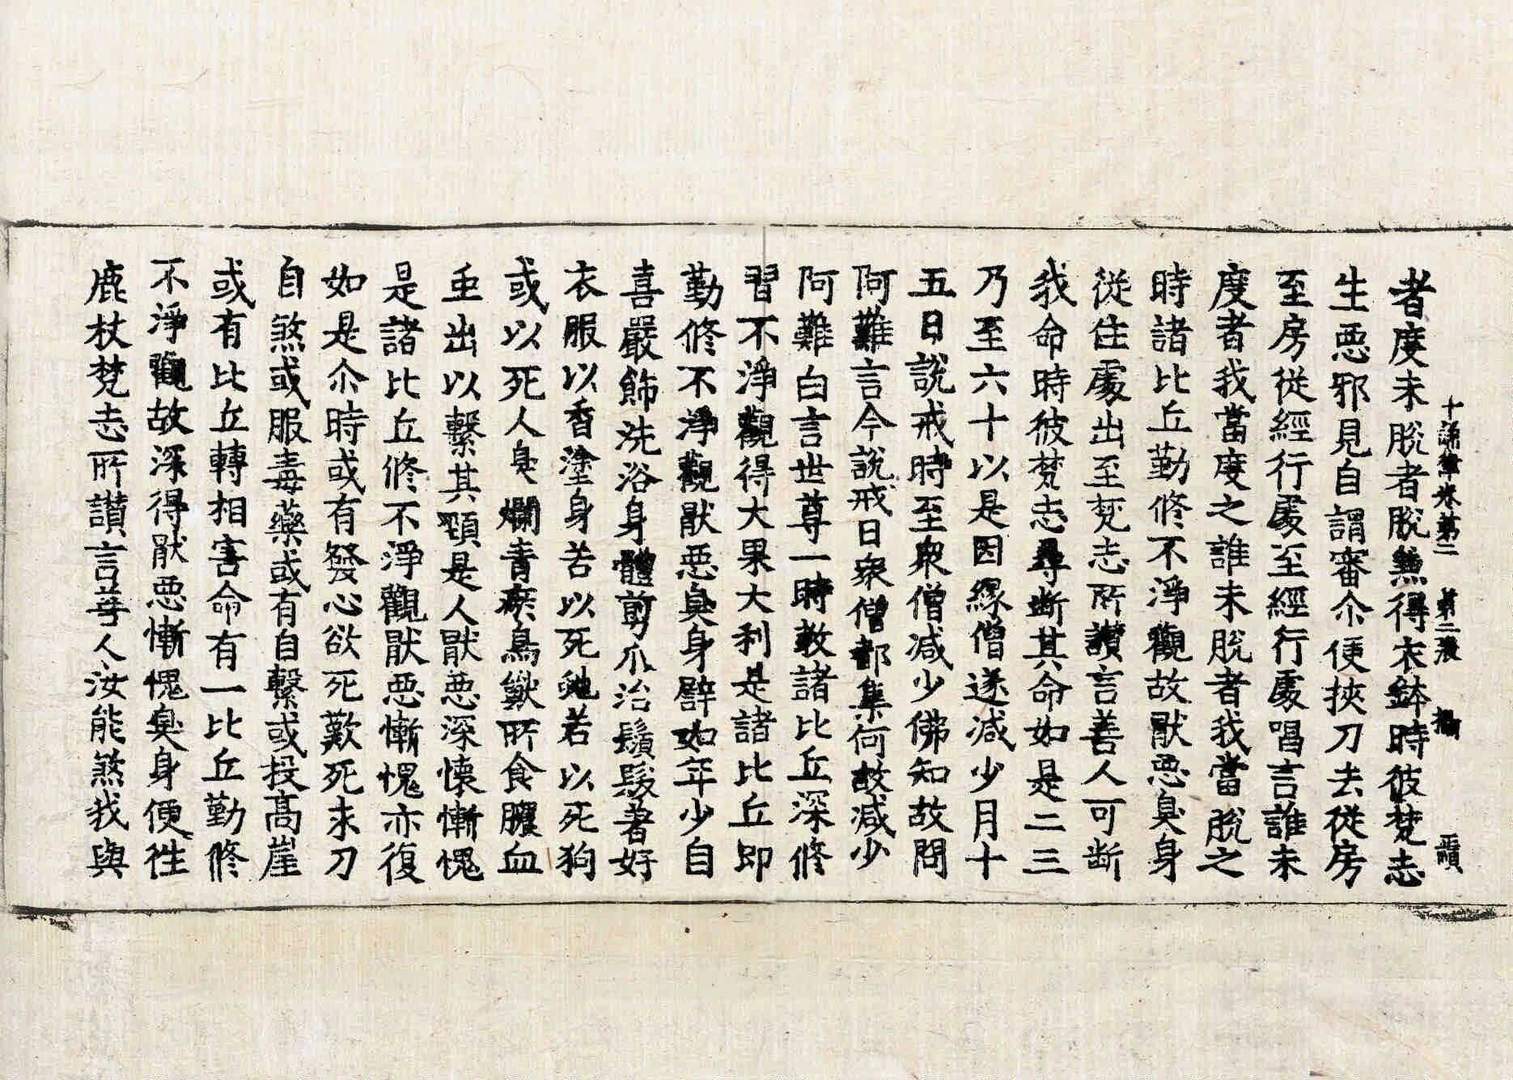 十誦律卷第二　第二張　攝　
者度未脫者脫兼得衣鉢時彼梵志
生惡邪見自謂審尒便挾刀去從房
至房從經行處至經行處唱言誰未
度者我當度之誰未脫者我當脫之
時諸比丘勤修不淨觀故猒惡臭身
從住處出至梵志所讃言善人可断
我命時彼梵志尋断其命如是二三
乃至六十以是因緣僧遂減少月十
五日說戒時至衆僧減少佛知故問
阿難言今說戒日衆僧都集何故減少
阿難白言世尊一時教諸比丘深修
習不淨觀得大果大利是諸比丘即
勤修不淨觀猒惡臭身譬如年少自
喜嚴飾洗浴身體剪爪治鬚髮著好
衣服以香塗身若以死虵若以死狗
或以死人臭爛青瘀鳥獸所食膿血
虫出以繫其頸是人猒惡深懷慚愧
是諸比丘修不淨觀猒惡慚愧亦復
如是尒時或有發心欲死歎死求刀
自煞或服毒藥或有自繫或投髙崖
或有比丘轉相害命有一比丘勤修
不淨觀故深得猒惡慚愧臭身便徃
鹿杖梵志所讃言善人汝能煞我與